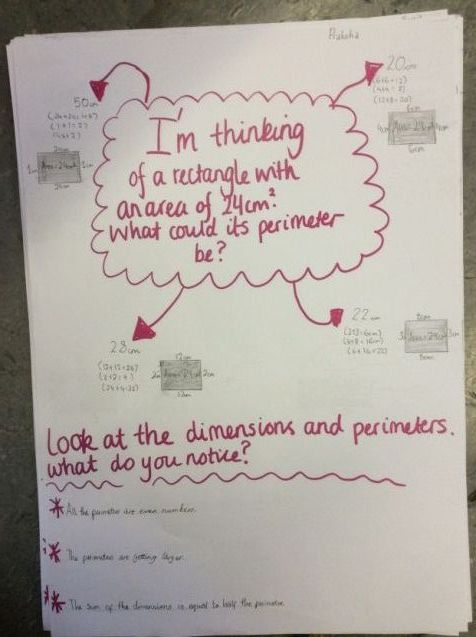 50cm
(24+24=48)
(1+1=2)
24cm
1cm Area = 24cm² 1cm
24cm
20cm
(6+6=12)
(4+4=8)
(12+8=20)
6cm
4cm Area = 24cm²
6cm
I'm thinking
of a rectangle with
an area of 24cm².
What could its perimeter
be?
28cm
(12+12=24)
(2+2=4)
(24+4=28)
12cm
Area = 24cm² 2cm
12cm
22cm
(3+3=6cm)
(8+8=16cm)
(6+16=22)
8cm
Area = 24cm² 3cm
8cm
Look at the dimensions and perimeters.
What do you notice?
* All the perimeter are even numbers.
* The perimeters are getting larger.
* The sum of the dimensions is equal to half the perimeter